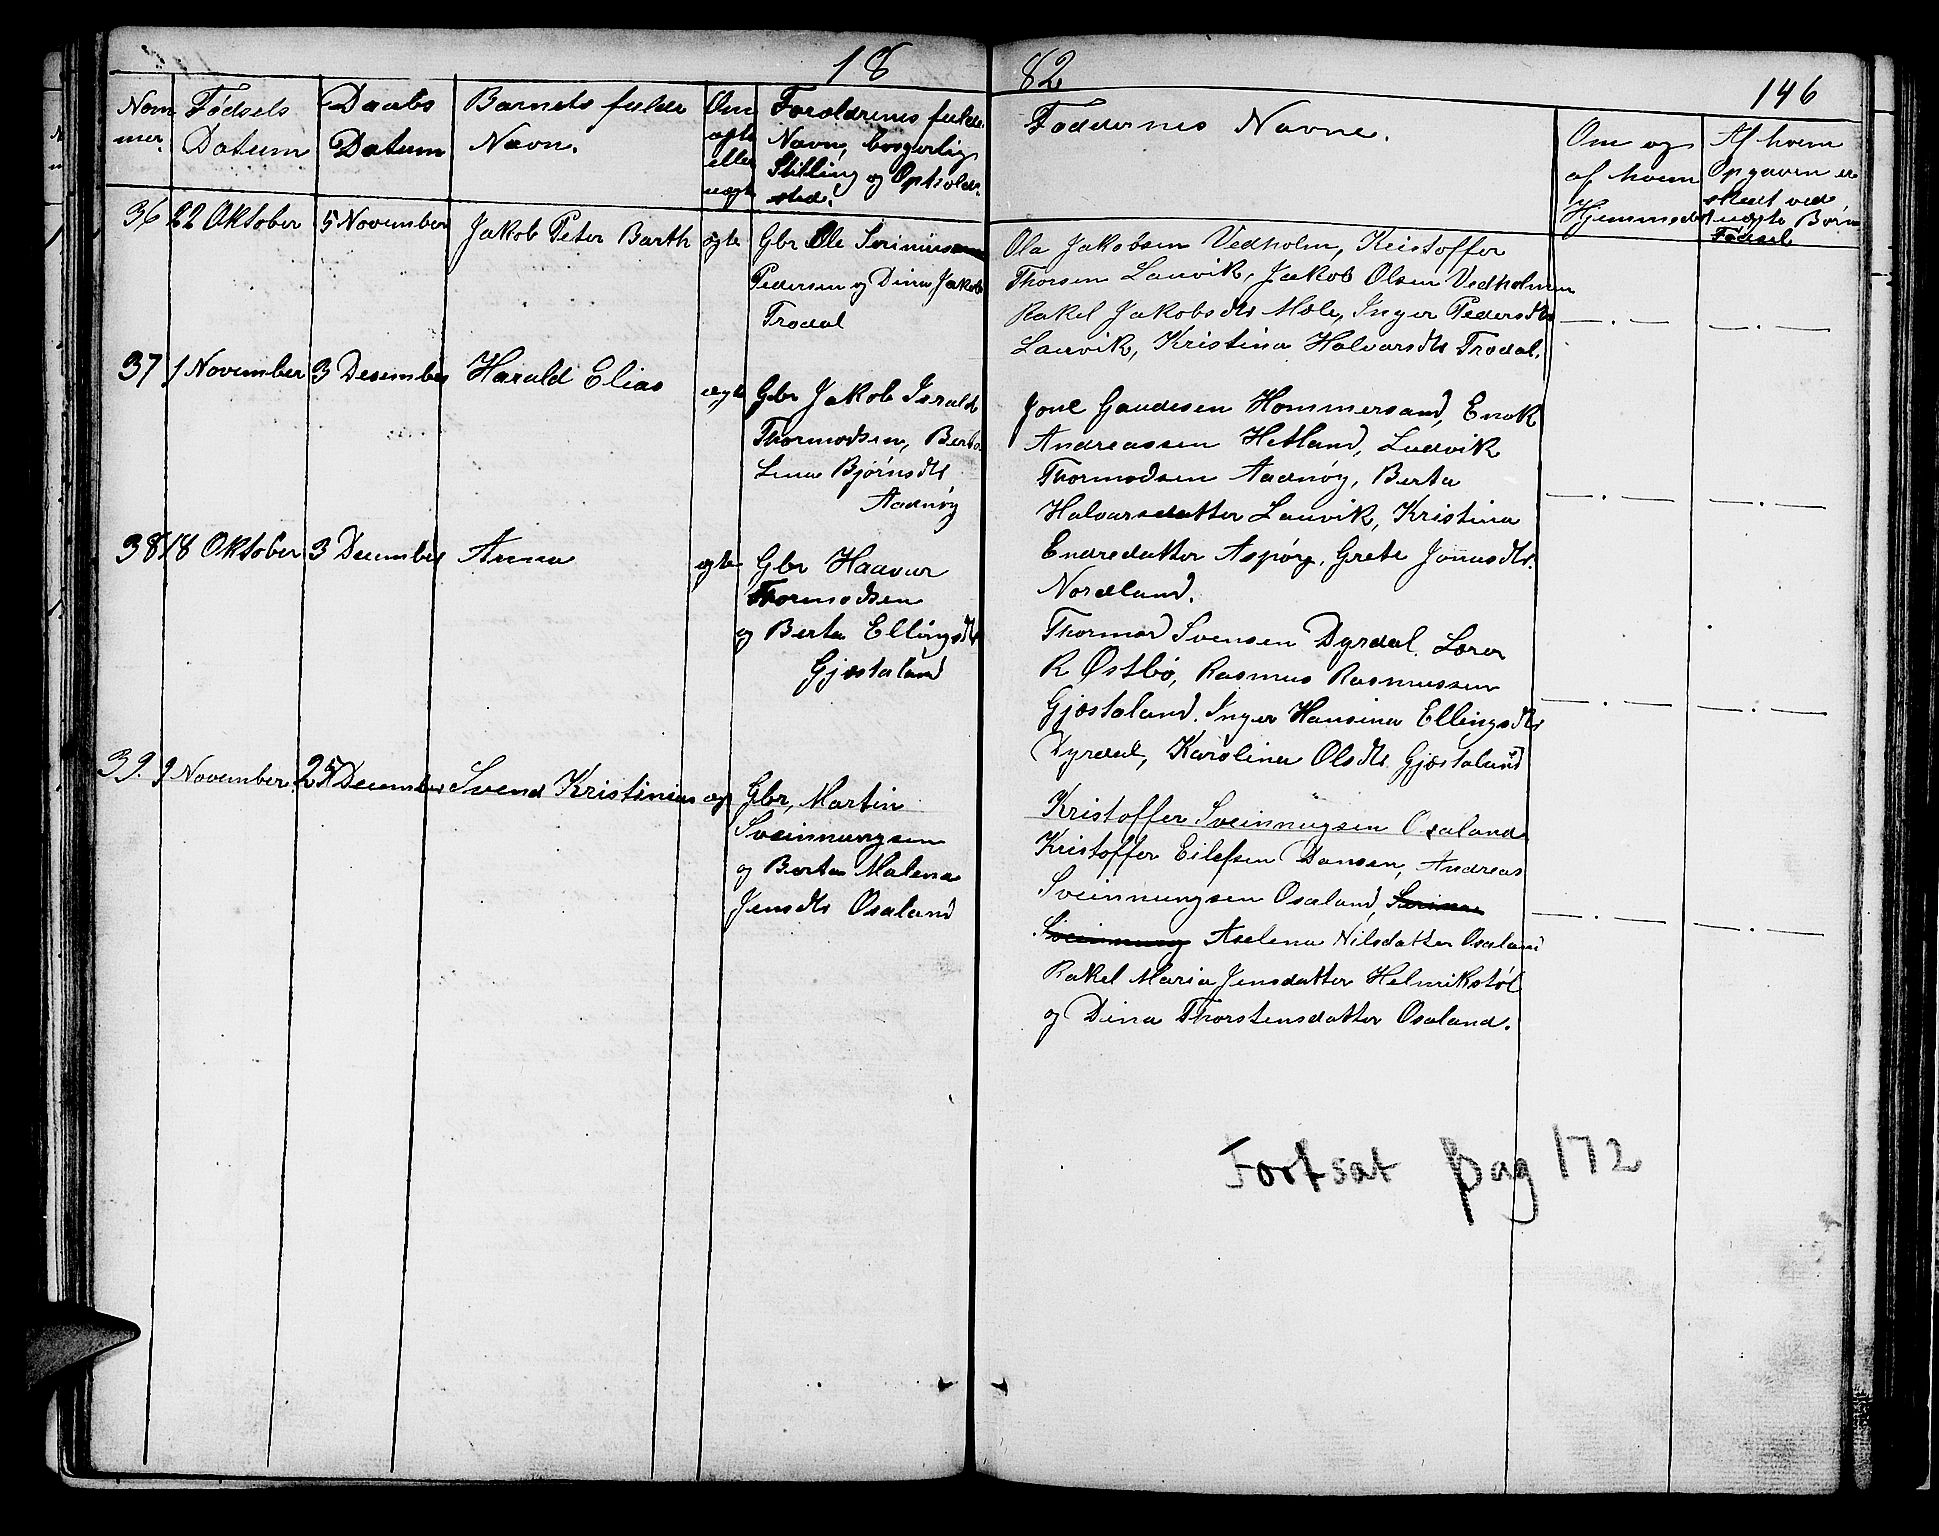 18 82
146
Nom
mer.
Fødsels
Datum
Daabs
Datum
Barnets fulde
Navn.
Om
ægte
eller
uægte
Forældrenes fulde
Navn, borgerlig
Stilling og Opholds-
sted.
Faddernes Navne.
Om og
af hvem
Hjemmedøbt
Af hvem
Opgaven er
skeet ved
uægte Børns
Fødsel
36 22 Oktober 5 November Jakob Peter Barth ægte
Gbr Ole Serinius
Pedersen og Dina Jakob
Trodal
Ola Jakobsen Vedholm, Kristoffer
Thorsen Lauvik, Jakob Olsen Vedholmen
Rakel Jakobsdtr Mæle, Inger Pedersdtr
Lauvik, Kristina Halvarsdtr Trodal.
37 1 November 3 Desember Harald Elias ægte
Gbr Jakob Serald
Thormodsen, Berta
Lina Bjørnsdtr
Aadnøy
Jone Gaudesen Hommersand, Enok
Andreassen Hetland, Ludvik
Thormodsen Aadnøy, Berta
Halvarsdatter Lauvik, Kristina
Endredatter Aspøy, Grete Jonasdtr.
Nordland.
38 18 Oktober 3 December Anna ægte
Gbr Haavar
Thormodsen
og Berta Ellingsdtr
Gjæstaland
Thormod Svensen Dyrdal. Lærer
R Østbø, Rasmus Rasmussen
Gjæstaland. Inger Hansina Ellingsdtr
Dyrdal, Karolina Olsdtr. Gjæstaland
39. 9 November. 25 December Svend Kristinius æg
Gbr, Martin
Sveinnungsen
og Berta Malena
Jensdtr Osaland
Kristoffer Sveinnugsen Osaland
Kristoffer Eilefsen Dansen, Andreas
Sveinnungsen Osaland, Serina
Sveinnung Aselena Nilsdatter Osaland
Rakel Maria Jensdatter Helmikstøl
og Dina Thorstensdatter Osaland.
Fortsat pag 172